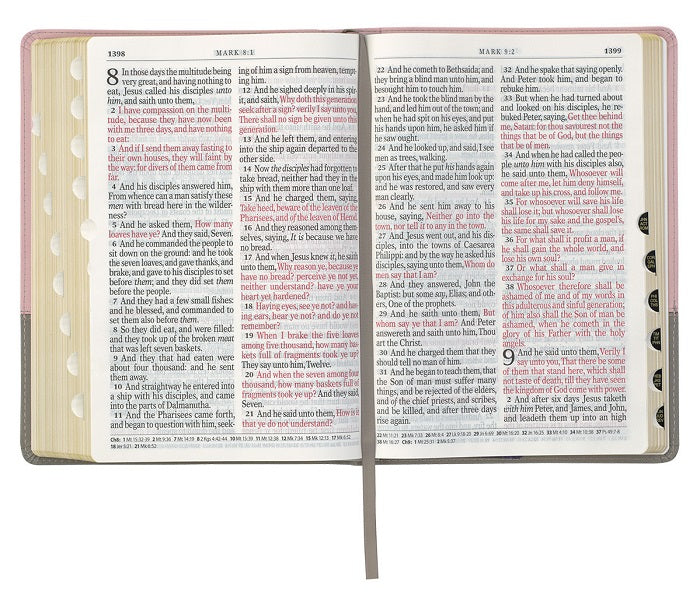 1398
MARK 8:1
8 In those days the multitude being
very great, and having nothing to
eat, Jesus called his disciples unto
him, and saith unto them,
2 I have compassion on the multi-
tude, because they have now been
with me three days, and have nothing
to eat:
3 And if I send them away fasting to
their own houses, they will faint by the
way: for divers of them came from
far.
4 And his disciples answered him,
From whence can a man satisfy these
men with bread here in the wilder-
ness?
5 And he asked them, How many
loaves have ye? And they said, Seven.
6 And he commanded the people to
sit down on the ground: and he took
the seven loaves, and gave thanks, and
brake, and gave to his disciples to set
before them; and they did set them
before the people.
7 And they had a few small fishes:
and he blessed, and commanded to
set them also before them.
8 So they did eat, and were filled:
and they took up of the broken meat
that was left seven baskets.
9 And they that had eaten were
about four thousand: and he sent
them away.
10 And straightway he entered into
a ship with his disciples, and came
into the parts of Dalmanutha.
11 And the Pharisees came forth,
and began to question with him, seek-
ing of him a sign from heaven, tempt-
ing him.
12 And he sighed deeply in his spir-
it, and saith, Why doth this generation
seek after a sign? verily I say unto you,
There shall no sign be given unto this
generation.
13 And he left them, and entering
into the ship again departed to the
other side.
14 Now the disciples had forgotten to
take bread, neither had they in the
ship with them more than one loaf.
15 And he charged them, saying,
Take heed, beware of the leaven of the
Pharisees, and of the leaven of Herod.
16 And they reasoned among them-
selves, saying, It is because we have
no bread.
17 And when Jesus knew it, he saith
unto them, Why reason ye, because ye
have no bread? perceive ye not yet,
neither understand? have ye your
heart yet hardened?
18 Having eyes, see ye not? and hav-
ing ears, hear ye not? and do ye not
remember?
19 When I brake the five loaves
among five thousand, how many bas-
kets full of fragments took ye up?
They say unto him, Twelve.
20 And when the seven among four
thousand, how many baskets full of
fragments took ye up? And they said,
Seven.
21 And he said unto them, How is it
that ye do not understand?
MARK 9:2
1399
22 And he cometh to Bethsaida; and
they bring a blind man unto him, and
besought him to touch him.
23 And he took the blind man by the
hand, and led him out of the town; and
when he had spit on his eyes, and put
his hands upon him, he asked him if
he saw ought.
24 And he looked up, and said, I see
men as trees, walking.
25 After that he put his hands again
upon his eyes, and made him look up:
and he was restored, and saw every
man clearly.
26 And he sent him away to his
house, saying, Neither go into the
town, nor tell it to any in the town.
27 And Jesus went out, and his dis-
ciples, into the towns of Caesarea
Philippi: and by the way he asked his
disciples, saying unto them, Whom do
men say that I am?
28 And they answered, John the
Baptist: but some say, Elias; and oth-
ers, One of the prophets.
29 And he saith unto them, But
whom say ye that I am? And Peter
answereth and saith unto him, Thou
art the Christ.
30 And he charged them that they
should tell no man of him.
31 And he began to teach them, that
the Son of man must suffer many
things, and be rejected of the elders,
and of the chief priests, and scribes,
and be killed, and after three days
rise again.
32 And he spake that saying openly.
And Peter took him, and began to
rebuke him.
33 But when he had turned about
and looked on his disciples, he re-
buked Peter, saying, Get thee behind
me, Satan: for thou savourest not the
things that be of God, but the things
that be of men.
34 And when he had called the peo-
ple unto him with his disciples also,
he said unto them, Whosoever will
come after me, let him deny himself,
and take up his cross, and follow me.
35 For whosoever will save his life
shall lose it; but whosoever shall lose
his life for my sake and the gospel's,
the same shall save it.
36 For what shall it profit a man, if
he shall gain the whole world, and
lose his own soul?
37 Or what shall a man give in
exchange for his soul?
38 Whosoever therefore shall be
ashamed of me and of my words in
this adulterous and sinful generation;
of him also shall the Son of man be
ashamed, when he cometh in the
glory of his Father with the holy
angels.
9 And he said unto them, Verily I
say unto you, That there be some
of them that stand here, which shall
not taste of death, till they have seen
the kingdom of God come with power.
2 And after six days Jesus taketh
with him Peter, and James, and John,
and leadeth them up into an high